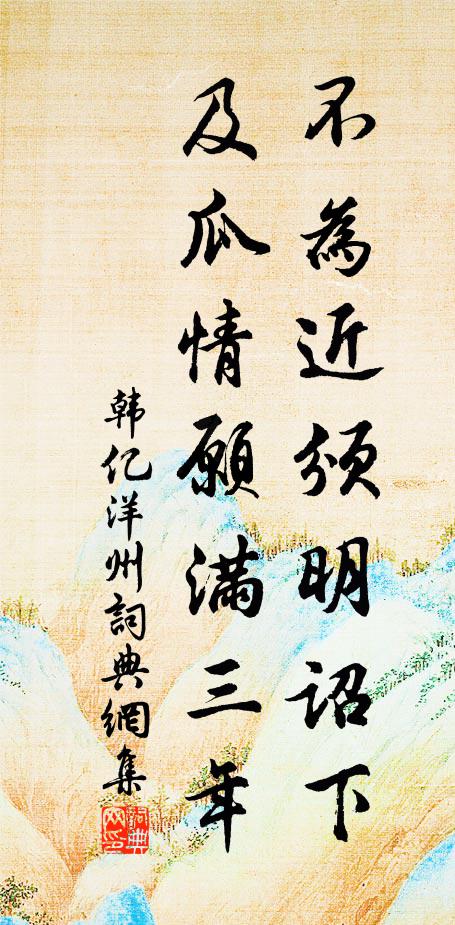 不為近頒明詔下
及瓜情願滿三年
韩亿洋州詞典網集
詞典